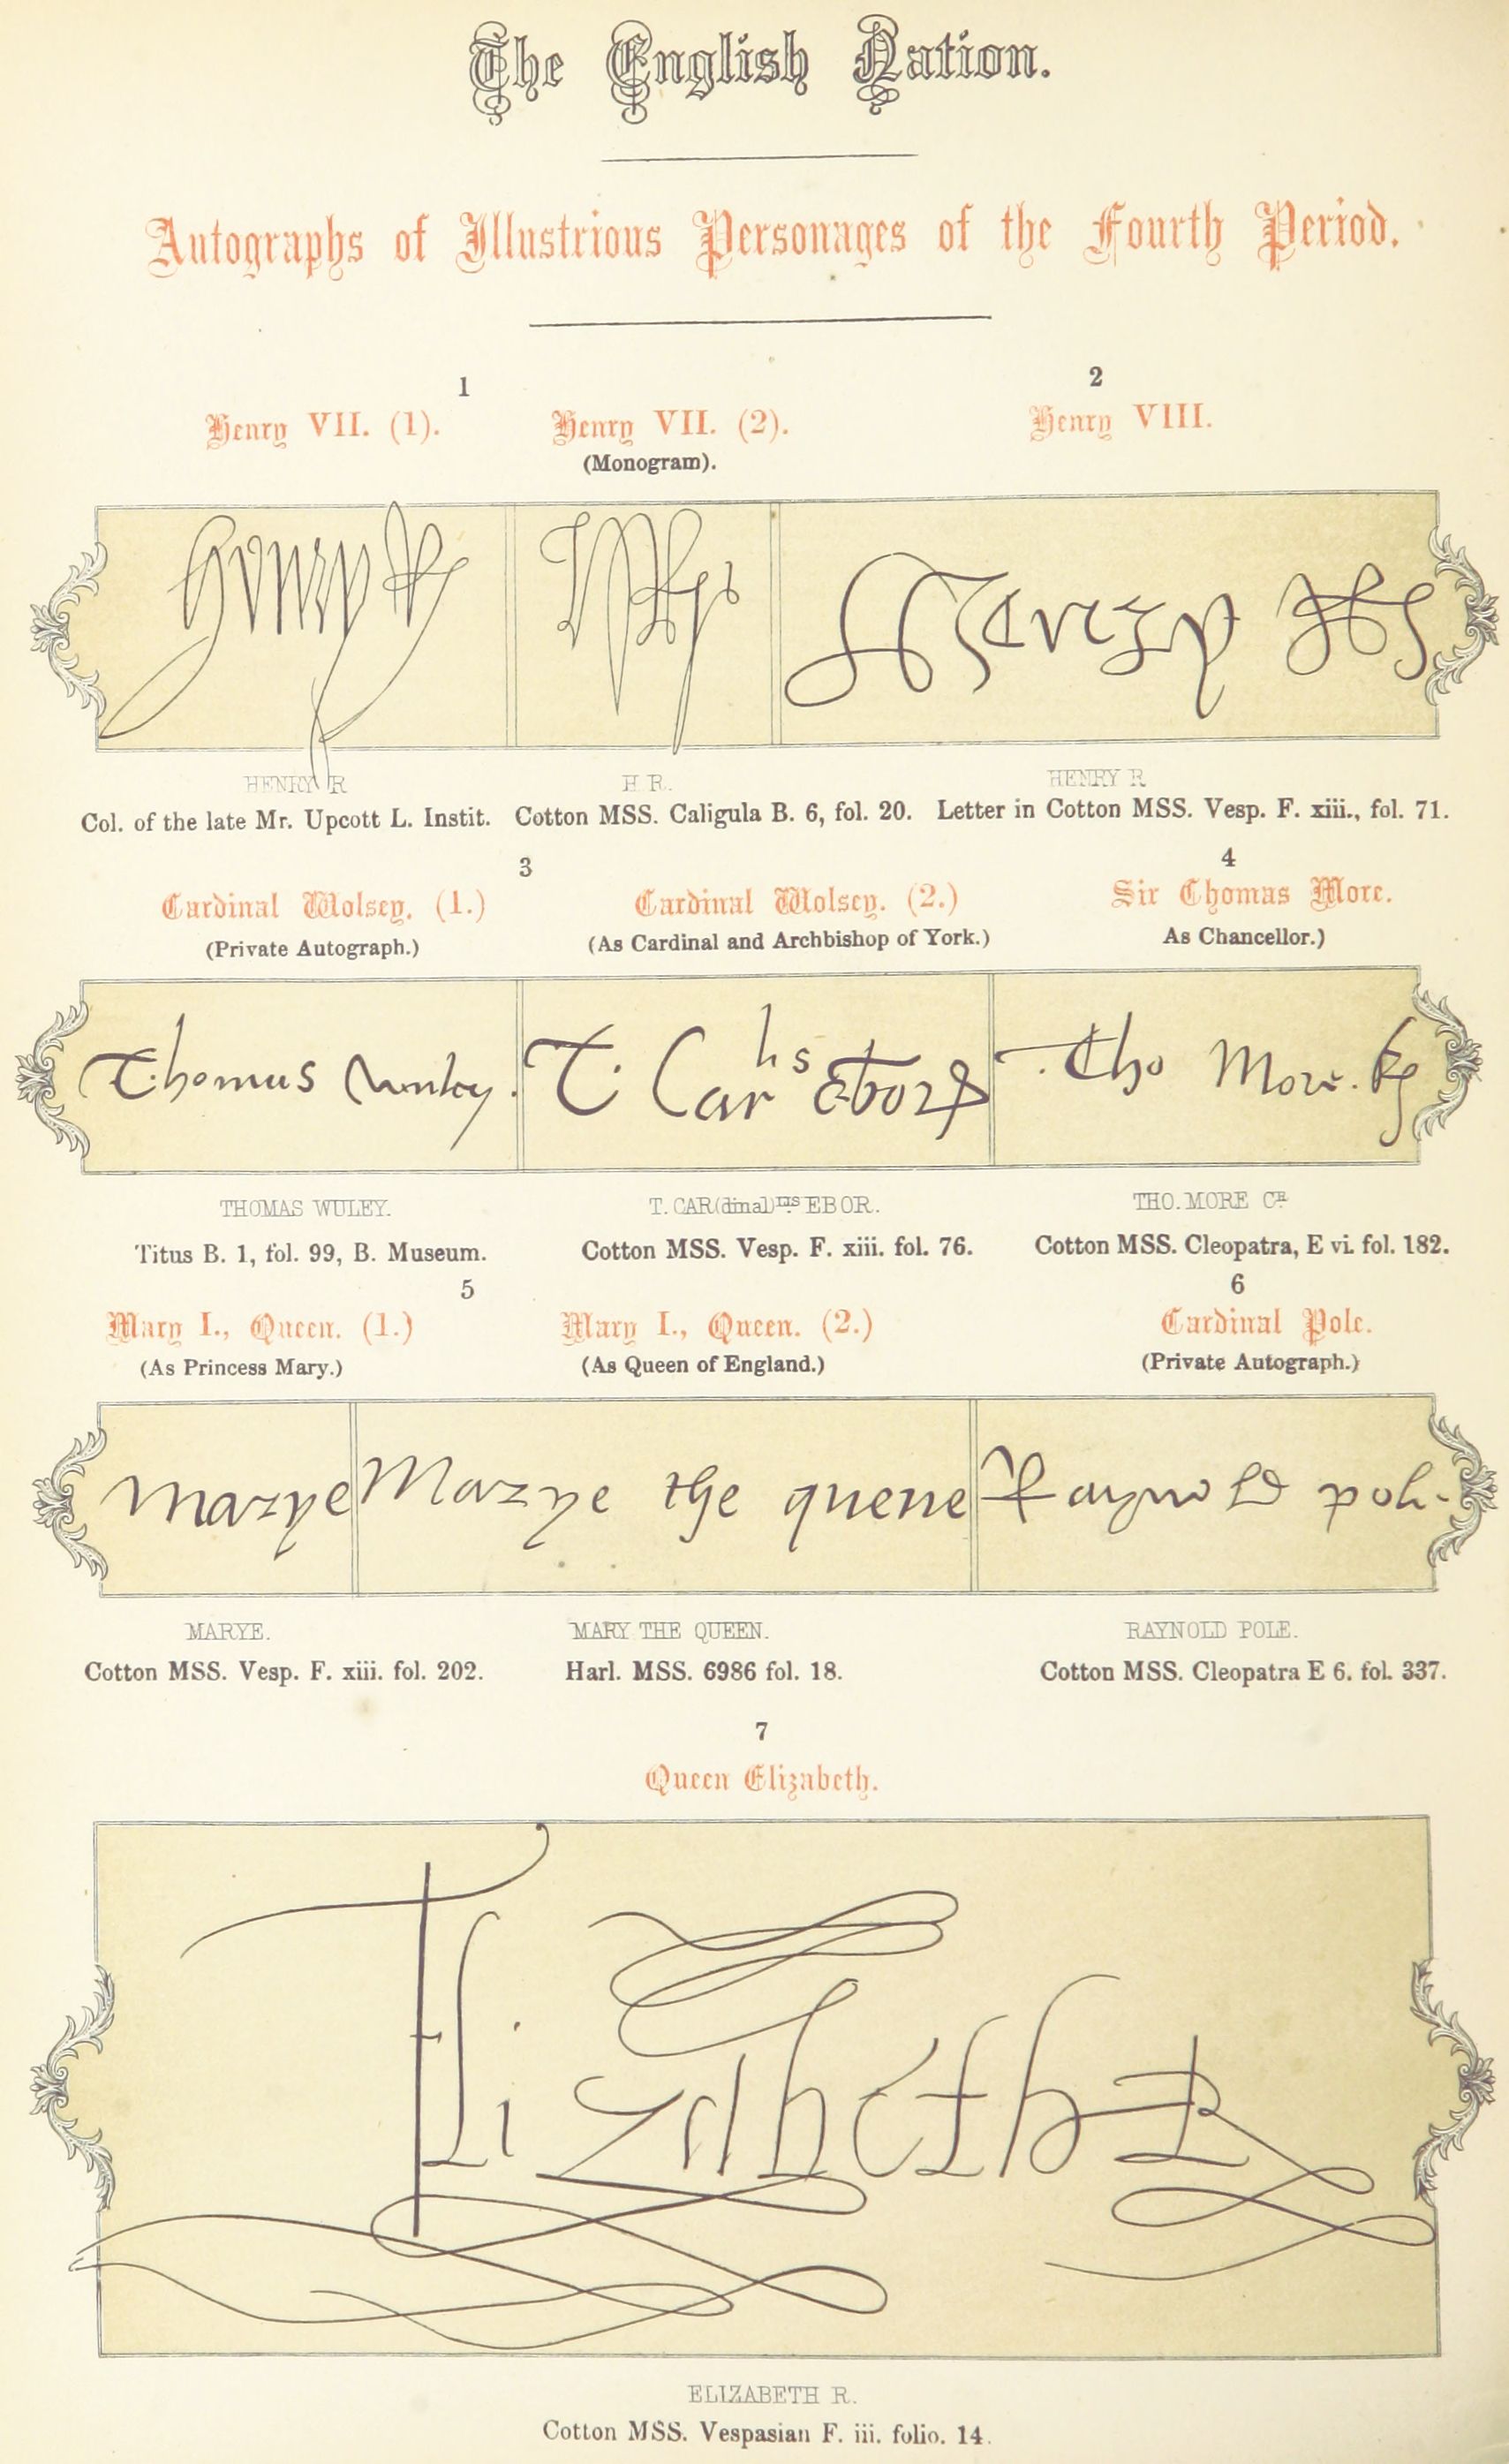 The English Nation.
Autographs of Illustrious Personages of the Fourth Period.
1 2
Henry VII. (1). Henry VII. (2). Henry VIII.
(Monogram).
Henry R HR Henry R
HENRY R H R. HENRY R
Col. of the late Mr. Upcott L. Instit. Cotton MSS. Caligula B. 6, fol. 20. Letter in Cotton MSS. Vesp. F. xiii., fol. 71.
3 4
Cardinal Wolsey. (1.) Cardinal Wolsey. (2.) Sir Thomas More.
(Private Autograph.) (As Cardinal and Archbishop of York.) As Chancellor.)
Thomas Wuley. T. Car lis Ebor Tho More.
THOMAS WULEY. T. CAR(dinal)lis EBOR. THO. MORE CR
Titus B. 1, fol. 99, B. Museum. Cotton MSS. Vesp. F. xiii. fol. 76. Cotton MSS. Cleopatra, E vi. fol. 182.
5 6
Mary I., Queen. (1.) Mary I., Queen. (2.) Cardinal Pole.
(As Princess Mary.) (As Queen of England.) (Private Autograph.)
Marye Marye the quene Raynold pole
MARYE. MARY THE QUEEN. RAYNOLD POLE.
Cotton MSS. Vesp. F. xiii. fol. 202. Harl. MSS. 6986 fol. 18. Cotton MSS. Cleopatra E 6. fol. 337.
7
Queen Elizabeth.
Elizabeth R
ELIZABETH R.
Cotton MSS. Vespasian F. iii. folio. 14.